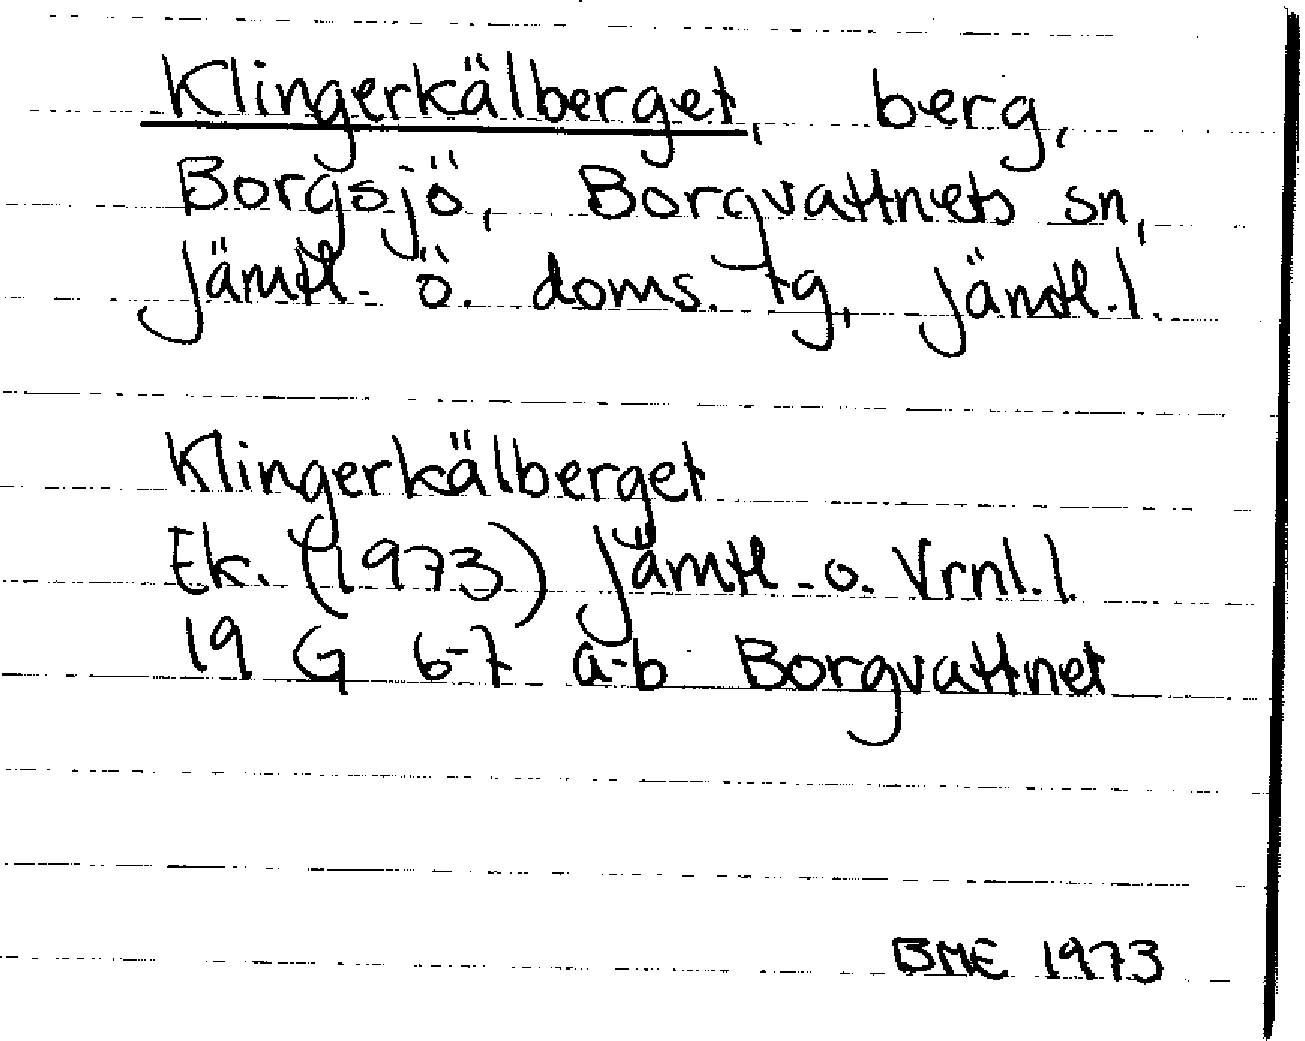 Klingerkälberget, berg,
Borgsjö, Borgvattnets sn,
Jämtl. ö. doms. tg, Jämtl. l.
Klingerkälberget
Ek. (1973) Jämtl. o. Vrnl. l.
19 G 6-7 a-b Borgvattnet
BME 1973